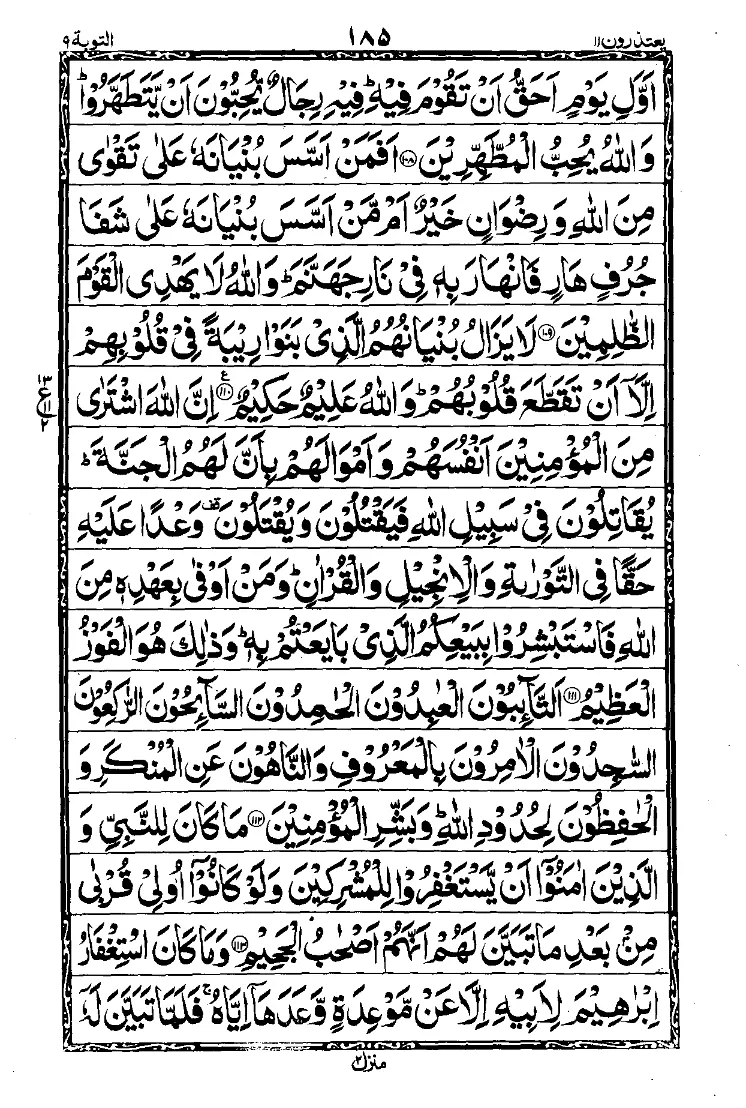 یعتذرون ۱۱ ۱۸۵ التوبة ۹
اَوَّلِ يَوْمٍ اَحَقُّ اَنْ تَقُوْمَ فِيْهِ ؕ فِيْهِ رِجَالٌ يُّحِبُّوْنَ اَنْ يَّتَطَهَّرُوْا ؕ
وَاللّٰهُ يُحِبُّ الْمُطَّهِّرِيْنَ ﴿۱۰۸﴾ اَفَمَنْ اَسَّسَ بُنْيَانَهٗ عَلٰى تَقْوٰى
مِنَ اللّٰهِ وَرِضْوَانٍ خَيْرٌ اَمْ مَّنْ اَسَّسَ بُنْيَانَهٗ عَلٰى شَفَا
جُرُفٍ هَارٍ فَانْهَارَ بِهٖ فِيْ نَارِ جَهَنَّمَ ؕ وَاللّٰهُ لَا يَهْدِى الْقَوْمَ
الظّٰلِمِيْنَ ﴿۱۰۹﴾ لَا يَزَالُ بُنْيَانُهُمُ الَّذِيْ بَنَوْا رِيْبَةً فِيْ قُلُوْبِهِمْ
اِلَّاۤ اَنْ تَقَطَّعَ قُلُوْبُهُمْ ؕ وَاللّٰهُ عَلِيْمٌ حَكِيْمٌ ﴿۱۱۰﴾ ع اِنَّ اللّٰهَ اشْتَرٰى
۱۳ ع ۱۱ ۲
مِنَ الْمُؤْمِنِيْنَ اَنْفُسَهُمْ وَاَمْوَالَهُمْ بِاَنَّ لَهُمُ الْجَنَّةَ ؕ
يُقَاتِلُوْنَ فِيْ سَبِيْلِ اللّٰهِ فَيَقْتُلُوْنَ وَيُقْتَلُوْنَ قف وَعْدًا عَلَيْهِ
حَقًّا فِى التَّوْرٰىةِ وَالْاِنْجِيْلِ وَالْقُرْاٰنِ ؕ وَمَنْ اَوْفٰى بِعَهْدِهٖ مِنَ
اللّٰهِ فَاسْتَبْشِرُوْا بِبَيْعِكُمُ الَّذِيْ بَايَعْتُمْ بِهٖ ؕ وَذٰلِكَ هُوَ الْفَوْزُ
الْعَظِيْمُ ﴿۱۱۱﴾ اَلتَّآئِبُوْنَ الْعٰبِدُوْنَ الْحٰمِدُوْنَ السَّآئِحُوْنَ الرّٰكِعُوْنَ
السّٰجِدُوْنَ الْاٰمِرُوْنَ بِالْمَعْرُوْفِ وَالنَّاهُوْنَ عَنِ الْمُنْكَرِ وَ
الْحٰفِظُوْنَ لِحُدُوْدِ اللّٰهِ ؕ وَبَشِّرِ الْمُؤْمِنِيْنَ ﴿۱۱۲﴾ مَا كَانَ لِلنَّبِيِّ وَ
الَّذِيْنَ اٰمَنُوْۤا اَنْ يَّسْتَغْفِرُوْا لِلْمُشْرِكِيْنَ وَلَوْ كَانُوْۤا اُولِيْ قُرْبٰى
مِنْۢ بَعْدِ مَا تَبَيَّنَ لَهُمْ اَنَّهُمْ اَصْحٰبُ الْجَحِيْمِ ﴿۱۱۳﴾ وَمَا كَانَ اسْتِغْفَارُ
اِبْرٰهِيْمَ لِاَبِيْهِ اِلَّا عَنْ مَّوْعِدَةٍ وَّعَدَهَاۤ اِيَّاهُ ۚ فَلَمَّا تَبَيَّنَ لَهٗۤ
منزل ۲